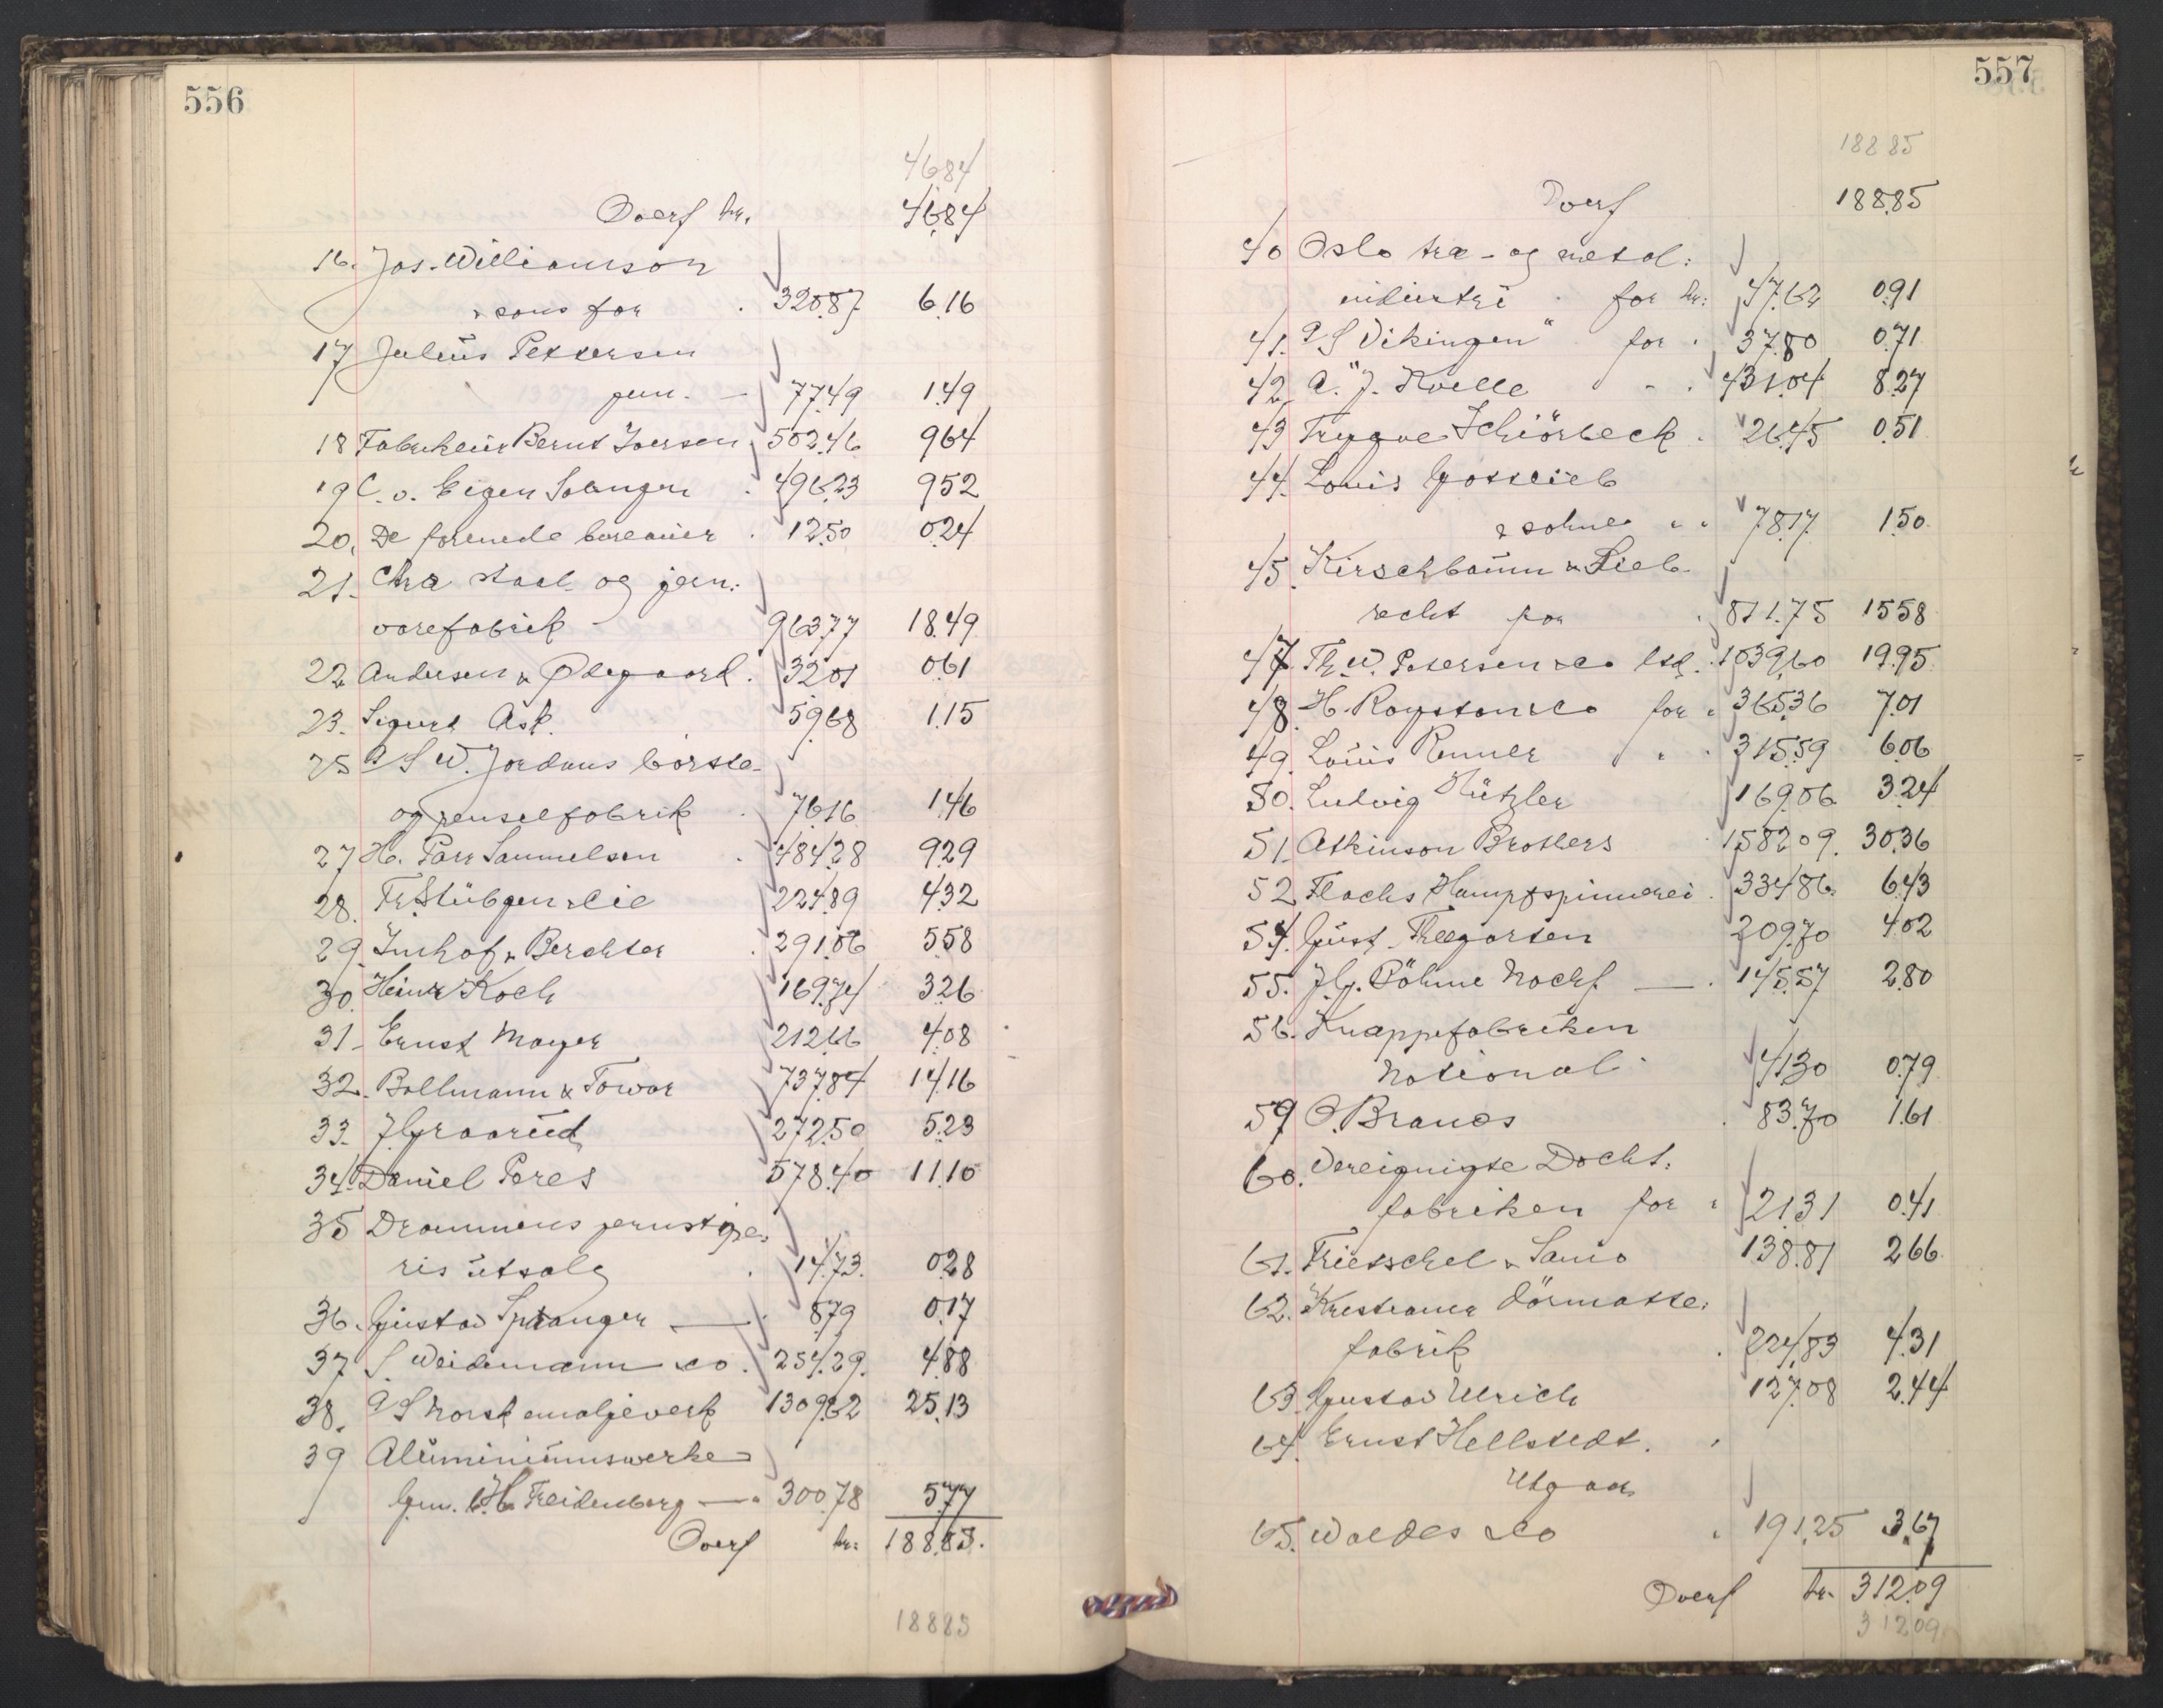 556
4684
Overf kr. 46.84
16. Jos. Williamson
& sons for 320.87 6.16
17 Julius Pettersen
jun. — 77.49 1.49
18 Fabrikeier Bernt Iversen 502.46 9.64
19 C. v. Eigen Solingen 496.23 9.52
20. De forenede bureauer 12.50 0.24
21. Chra staal og jern:
varefabrik — 963.77 18.49
22 Andersen & Ødegaard 32.01 0.61
23. Sigurd Ask. 59.68 1.15
25 A/S W. Jordans börste-
og penselfabrik 76.16 1.46
27 H. Parr Samuelsen 484.28 9.29
28. Fr. Stübgen & Cie 224.89 4.32
29. Imhof & Berchter 291.06 5.58
30. Heinr Koch 169.74 3.26
31. Ernst Mayer 212.66 4.08
32. Bollmann & Towar 737.84 14.16
33. J. Graarud 272.50 5.23
34. Daniel Peres 578.40 11.10
35 Drammens jernstøpe-
ris utsalg 14.73. 0.28
36. Gustav Spranger — 8.79 0.17
37 S. Weidemann & Co. 254.29. 4.88
38. A/S Norsk emaljeverk 1309.62 25.13
39 Aluminiumswerke
Gm. b. H. Freidenberg — " 300.78 5.77
Overf kr: 188.85.
18885
557
18885
Overf 188.85
40 Oslo træ- og metal:
industri for kr: 47.62 0.91
41. A/S "Vikingen" for 37.80 0.71
42. A. J. Kvelle " 431.04 8.27
43 Trygve Schiörbeck 26.45 0.51
44. Louis Gottlieb
& sohne " " 78.17 1.50
45. Kirschbaum & Sieb-
recht for 811.75 15.58
47. Th. W. Petersen & Co ltd. 1039.60 19.95
48. H. Royston & Co for " 365.36 7.01
49. Louis Renner " 315.59 6.06
50. Ludvig Hützler 169.06 3.24
51. Atkinson Brothers 1582.09. 30.36
52 Flachs Hampfspinnerei 334.86 6.43
54. Gust. Theegarten 209.70 4.02
55. J. G. Böhme Nachf — 145.57 2.80
56. Knappefabriken
National 41.30 0.79
59 O. Branos 83.70 1.61
60. Vereignigte Docht:
fabriken for " 21.31 0.41
61. Frietschel & Sanio 138.81 2.66
62. Kristiania dörmatte:
fabrik 224.83 4.31
63. Gustav Ulrich 127.08 2.44
64. Ernst Hellstedt. "
Utgaar
65. Waldes & Co " 191.25 3.67
Overf kr. 312.09
31209